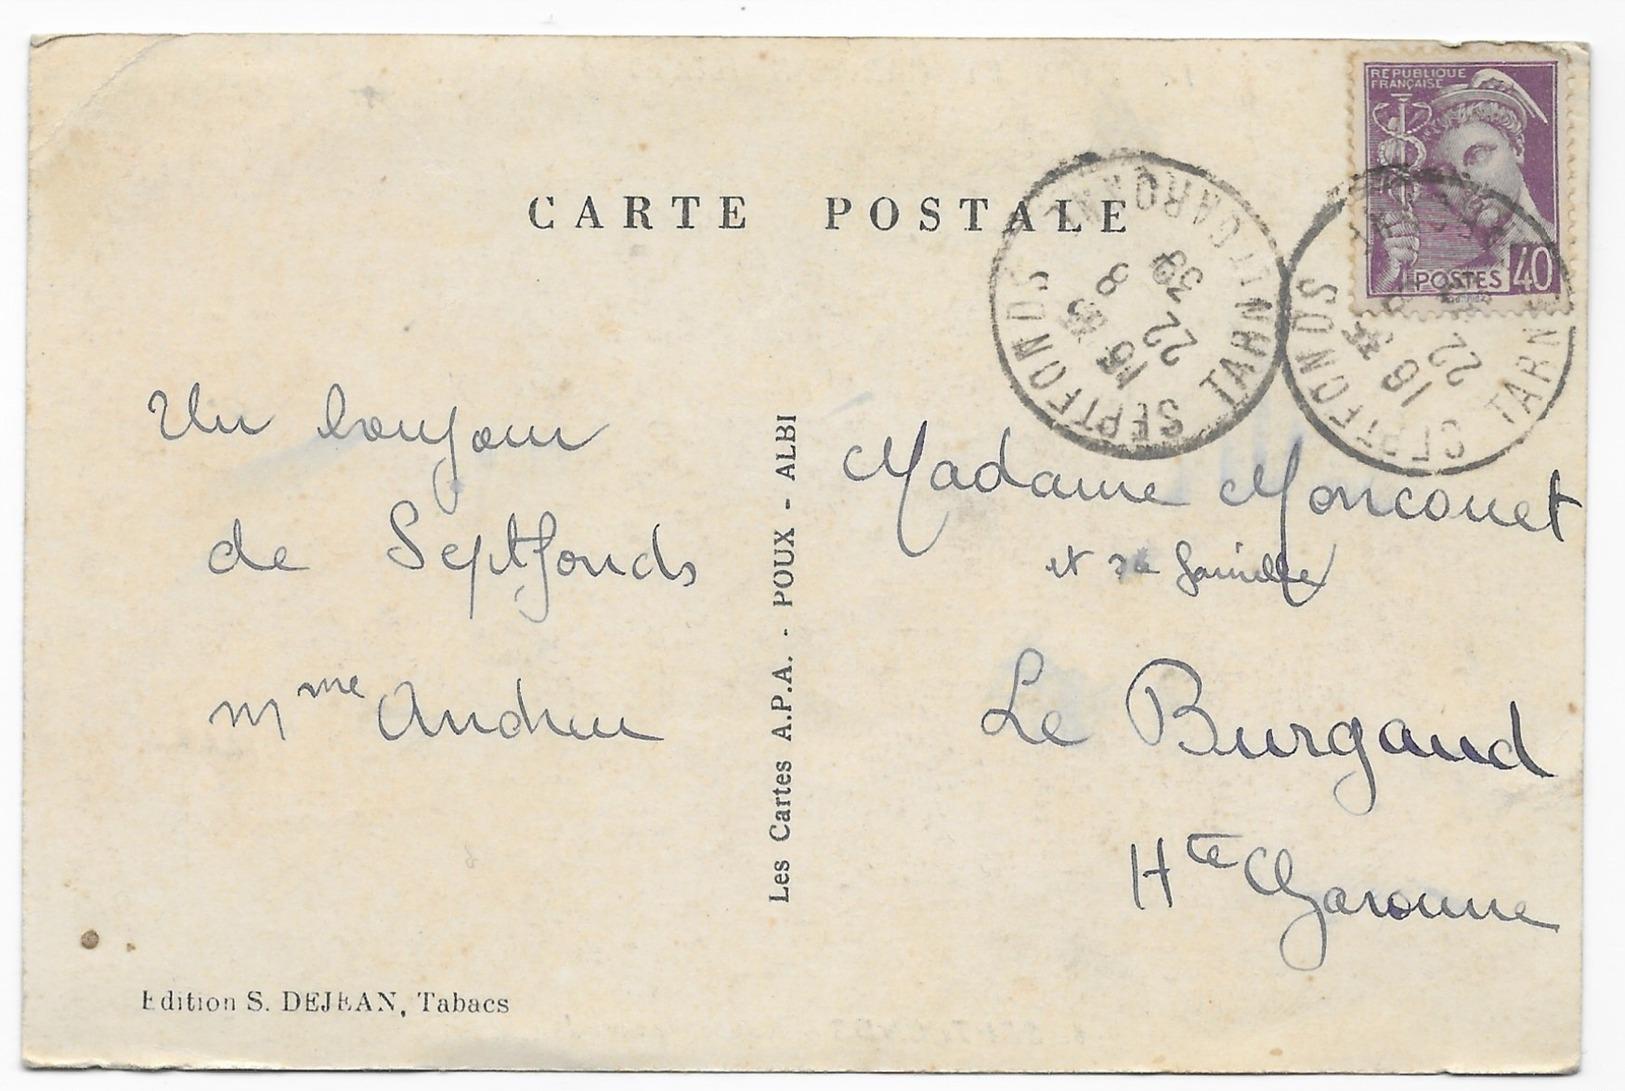 CARTE POSTALE
REPUBLIQUE
FRANÇAISE
POSTES 40
SEPTFONDS TARN ET GARONNE
16 *
22 8
39
SEPTFONDS TARN
18 *
22
Un bonjour
de Septfonds
Mme Andrieu
Les Cartes A.P.A. - POUX - ALBI
Madame Moncouet
et sa famille
Le Burgaud
Hte Garonne
Edition S. DEJEAN, Tabacs